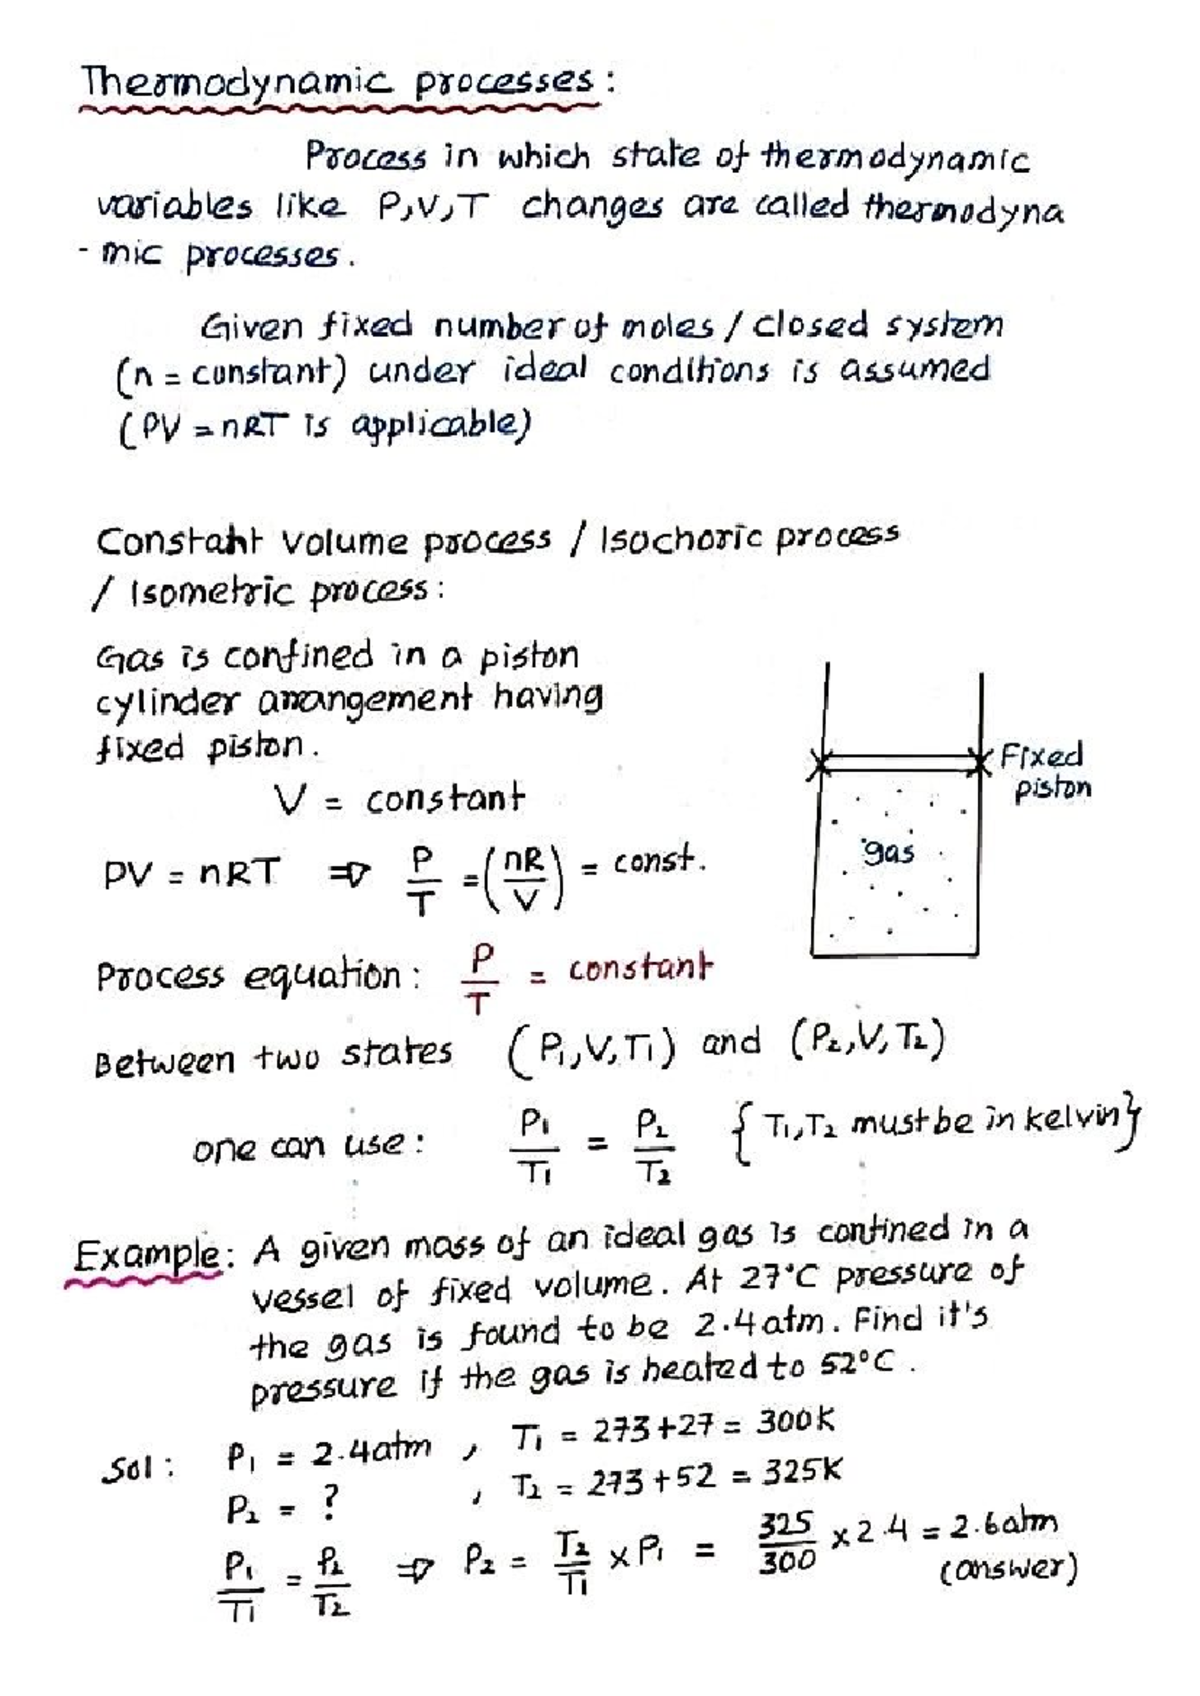 Thermodynamic processes:
Process in which state of thermodynamic
variables like P,V,T changes are called thermodyna
-mic processes.
Given fixed number of moles / closed system
(n = constant) under ideal conditions is assumed
(PV = nRT is applicable)
Constant volume process / Isochoric process
/ Isometric process:
Gas is confined in a piston
cylinder arrangement having
fixed piston.
Fixed
piston
gas
V = constant
PV = nRT ⇒ P/T = (nR/V) = const.
Process equation: P/T = constant
Between two states (P₁,V,T₁) and (P₂,V,T₂)
one can use: P₁/T₁ = P₂/T₂ {T₁,T₂ must be in kelvin}
Example: A given mass of an ideal gas is confined in a
vessel of fixed volume. At 27°C pressure of
the gas is found to be 2.4atm. Find it's
pressure if the gas is heated to 52°C.
Sol: P₁ = 2.4atm , T₁ = 273+27 = 300K
P₂ = ? , T₂ = 273+52 = 325K
P₁/T₁ = P₂/T₂ ⇒ P₂ = T₂/T₁ × P₁ = 325/300 × 2.4 = 2.6atm
(answer)